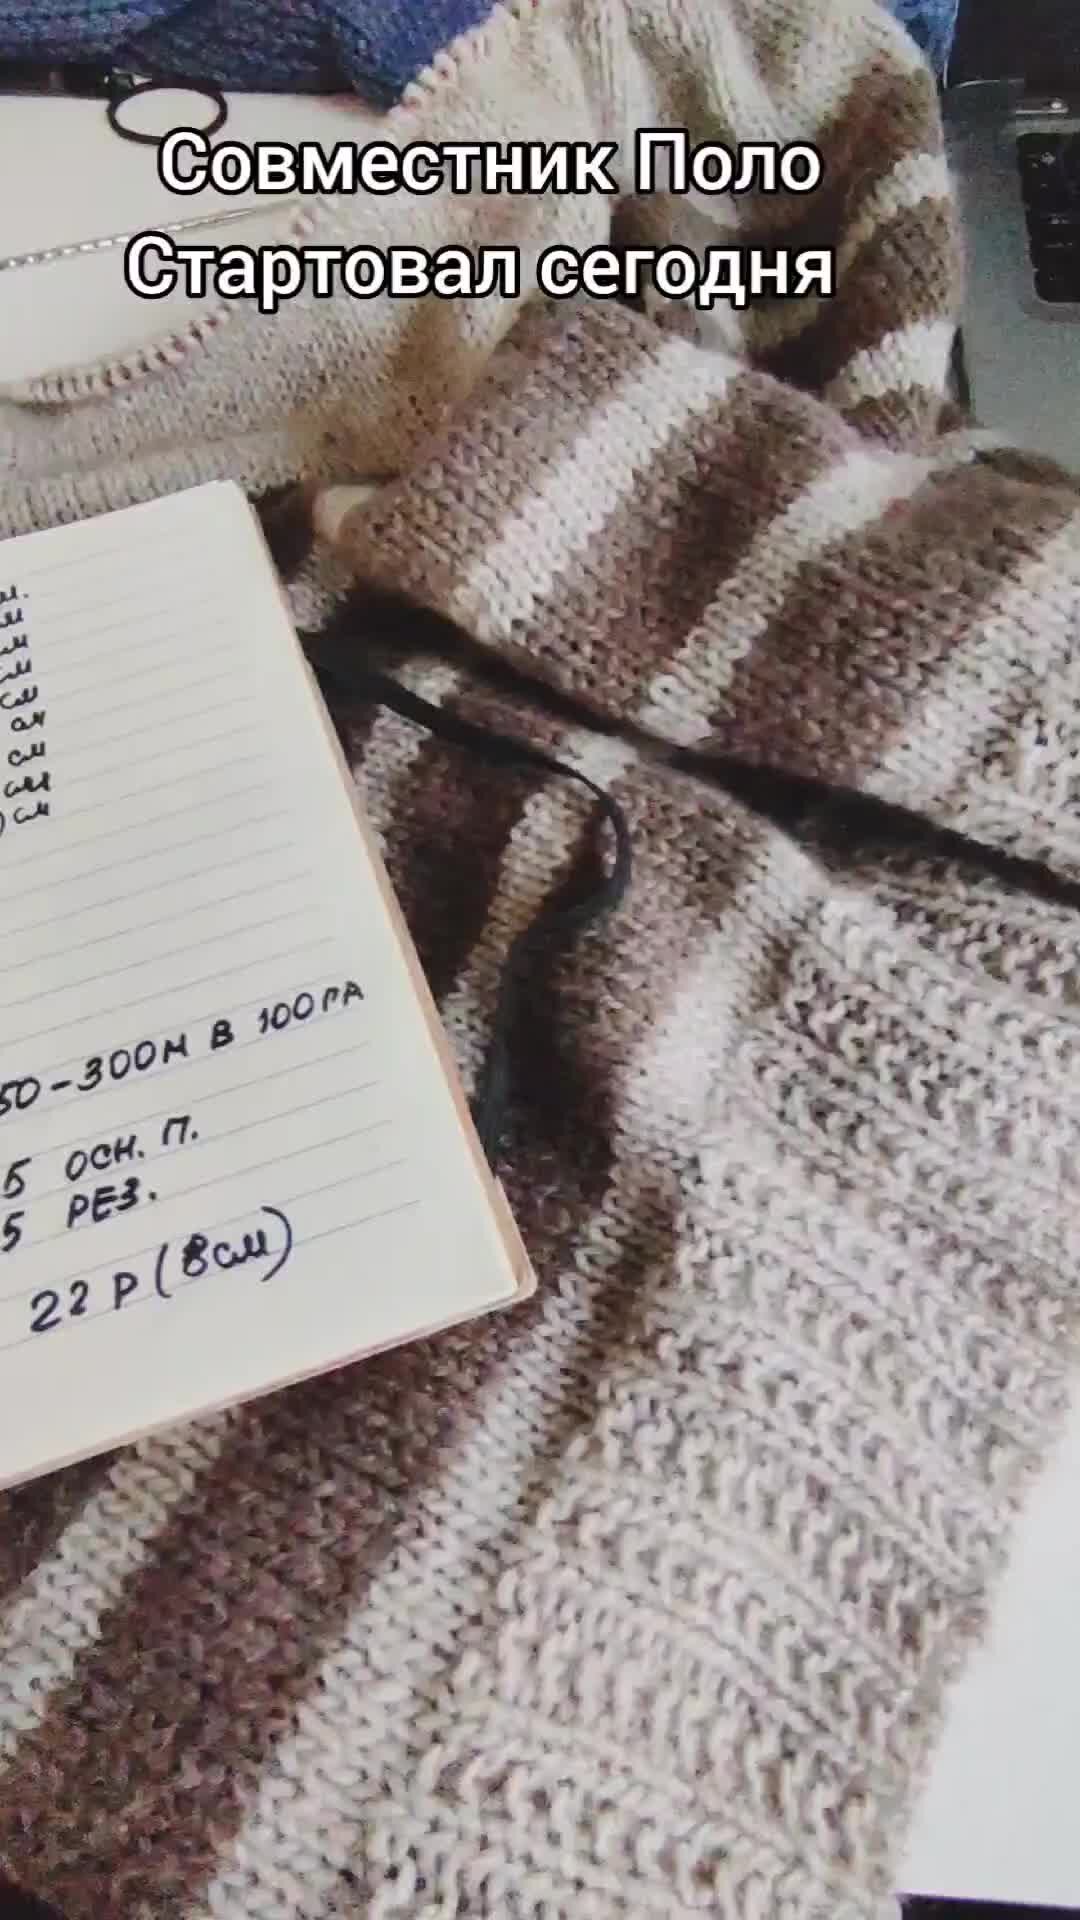 Совместник Поло
Стартовал сегодня
м.
м
см
см
см
см
см
см
) см
50-300М В 100ГР
5 ОСН. П.
5 РЕЗ.
22 Р (8см)